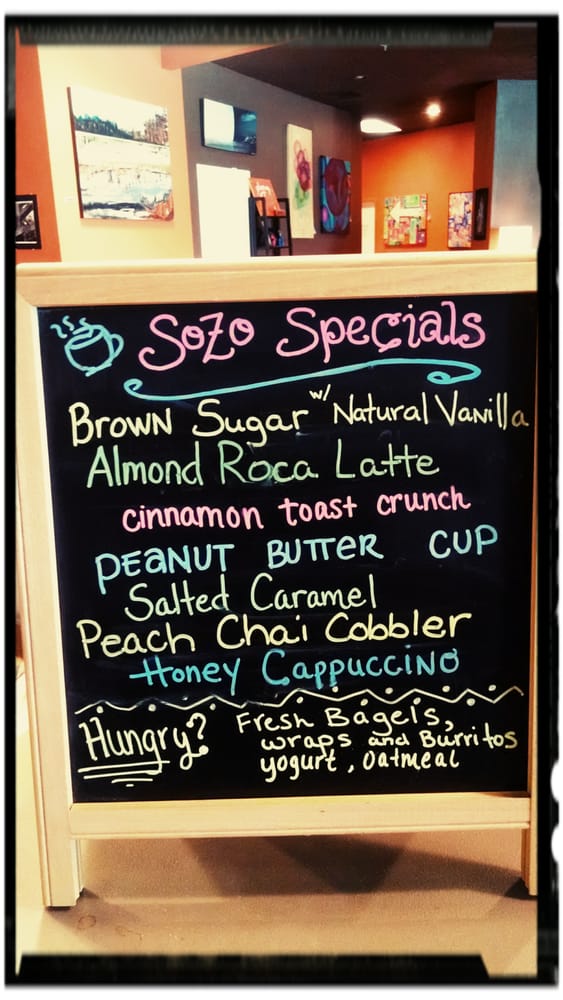 Sozo Specials
Brown Sugar w/ Natural Vanilla
Almond Roca Latte
cinnamon toast crunch
PEANUT BUTTER CUP
Salted Caramel
Peach Chai Cobbler
Honey Cappuccino
Hungry? Fresh Bagels,
wraps and Burritos
yogurt, oatmeal